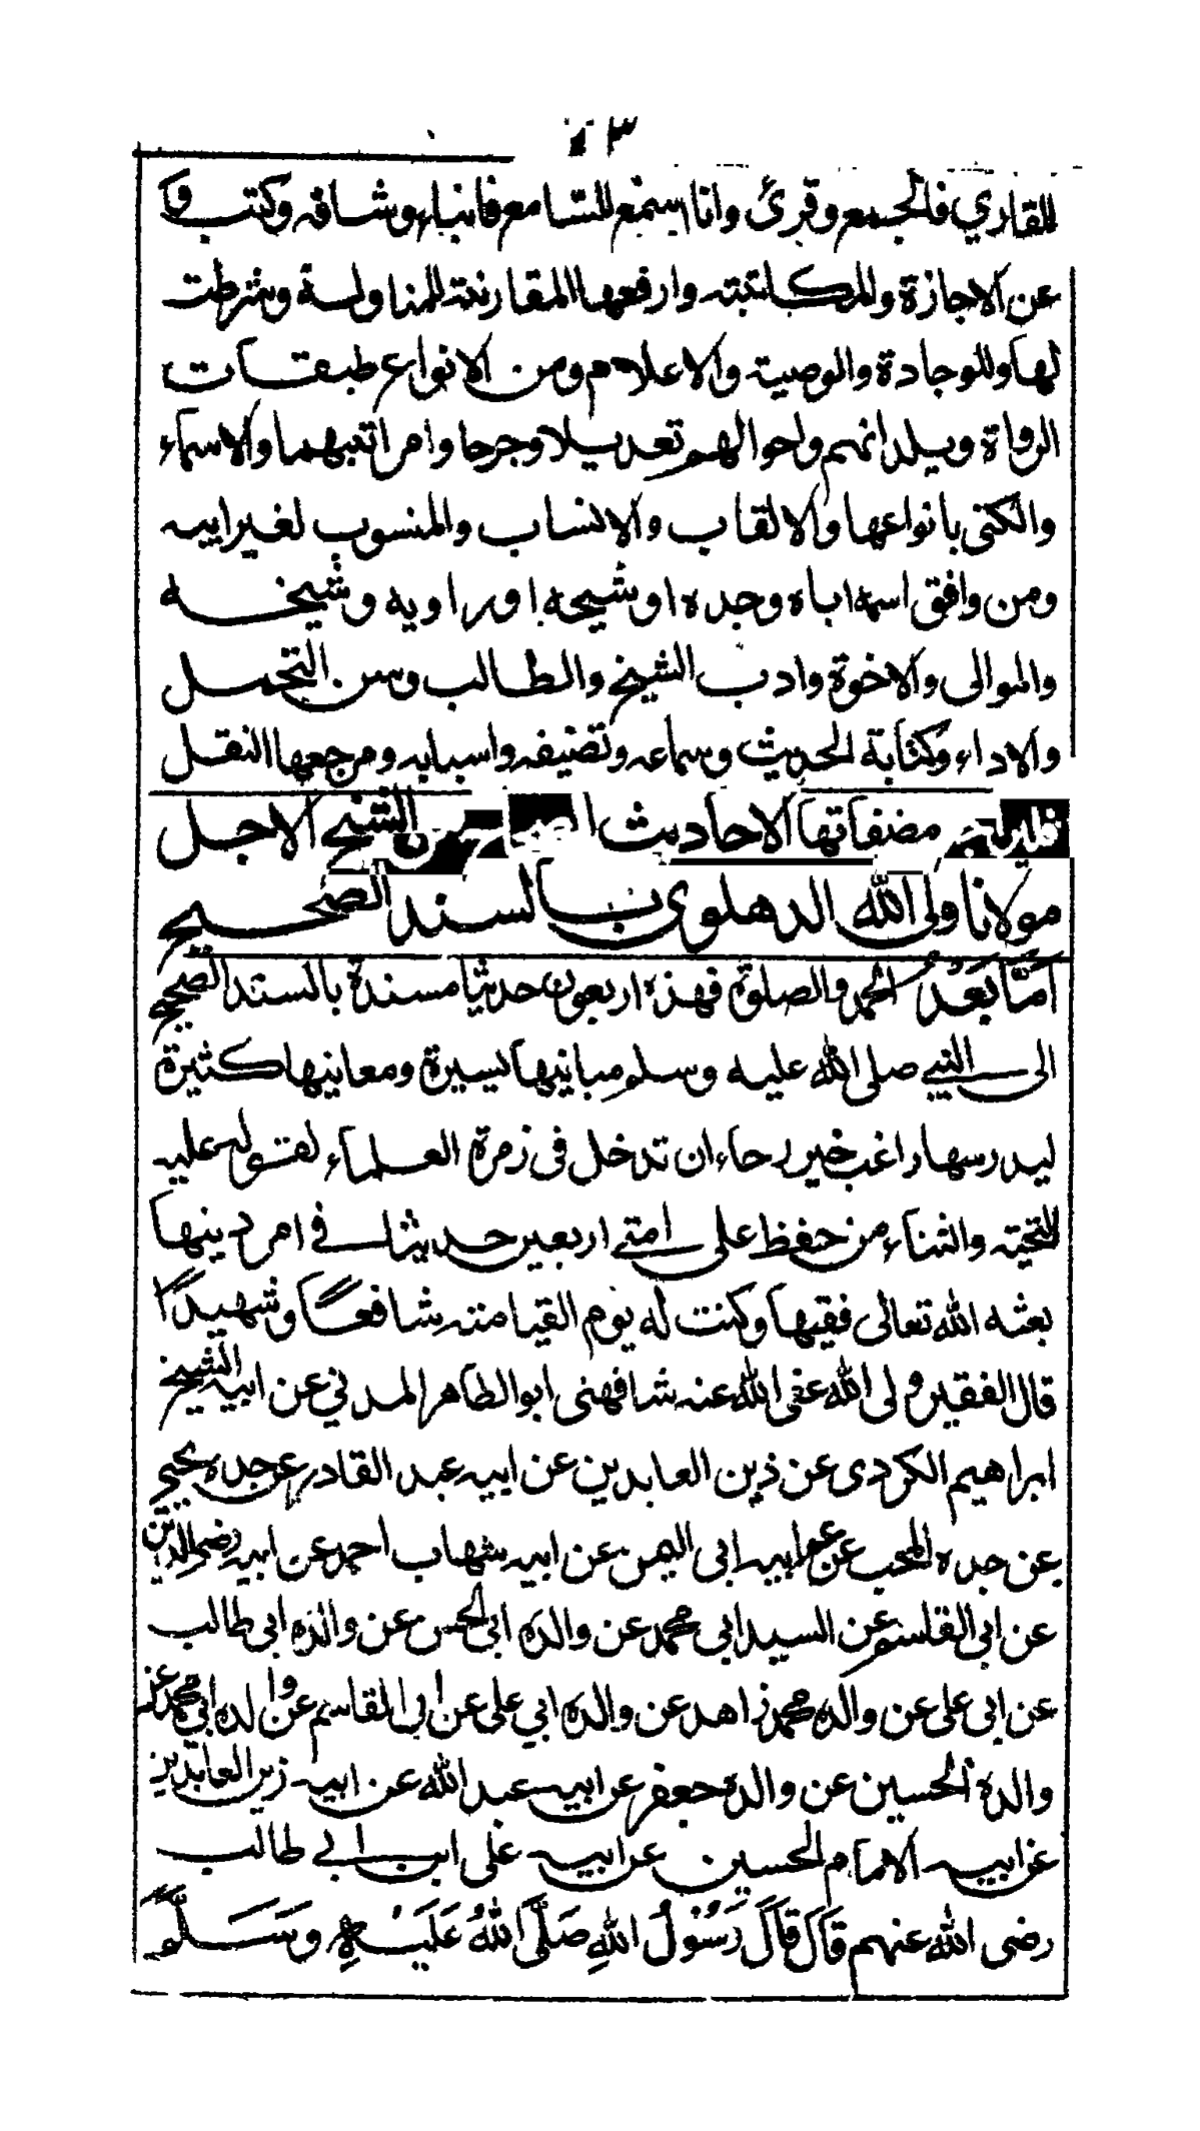 ٣
للقاري فالجمع وقرئ وانا اسمع للسامع فانباء وشافه وكتب و
عن الاجازة وللمكاتبته وارفعها المقارنته للمناولة وشرطت
لها وللوجادة والوصية والاعلام ومن الانواع طبقات
الرواة وبلدانهم واحوالهم تعديلا وجرحا ومراتبهما والاسماء
والكنى بانواعها والالقاب والانساب والمنسوب لغير ابيه
ومن وافق اسمه اباه وجده او شيخه او راويه وشيخه
والموالى والاخوة وادب الشيخ والطالب وسن التحمل
والاداء وكتابة الحديث وسماعه وتصنيفه واسبابه ومرجعها النقل
مضفاتها الاحاديث الشيخ الاجل
مولانا ولى الله الدهلوى بالسند الصحيح
اَمَّا بَعْدُ الحمد والصلوة فهذه اربعون حديثا مسندة بالسند الصحيح
الى النبي صلى الله عليه وسلم مبانيها يسيرة ومعانيها كثيرة
ليدرسها راغب خير رجاء ان تدخل فى زمرة العلماء لقوله عليه
التحيته والثناء من حفظ على امتي اربعين حديثا في امر دينها
بعثه الله تعالى فقيها وكنت له يوم القيامته شافعًا وشهيدًا
قال الفقير ولى الله عفى الله عنه شافهنى ابو الطاهر المدني عن ابيه الشيخ
ابراهيم الكردى عن زين العابدين عن ابيه عبد القادر عن جده يحيى
عن جده المحب عن عم ابيه ابى اليمن عن ابيه شهاب احمد عن ابيه رضى الدين
عن ابى القلسم عن السيد ابى محمد عن والده ابى الحسن عن والده ابى طالب
عن ابى على عن والده محمد زاهد عن والده ابي على عن ابى القاسم عن والده ابي محمد عن
والده الحسين عن والده جعفر عن ابيه عبد الله عن ابيه زين العابدين
عن ابيه الامام الحسين عن ابيه على ابن ابي طالب
رضى الله عنهم قَالَ قَالَ رَسُوْلُ اللهِ صَلَّى اللهُ عَلَيْهِ وَسَلَّمَ